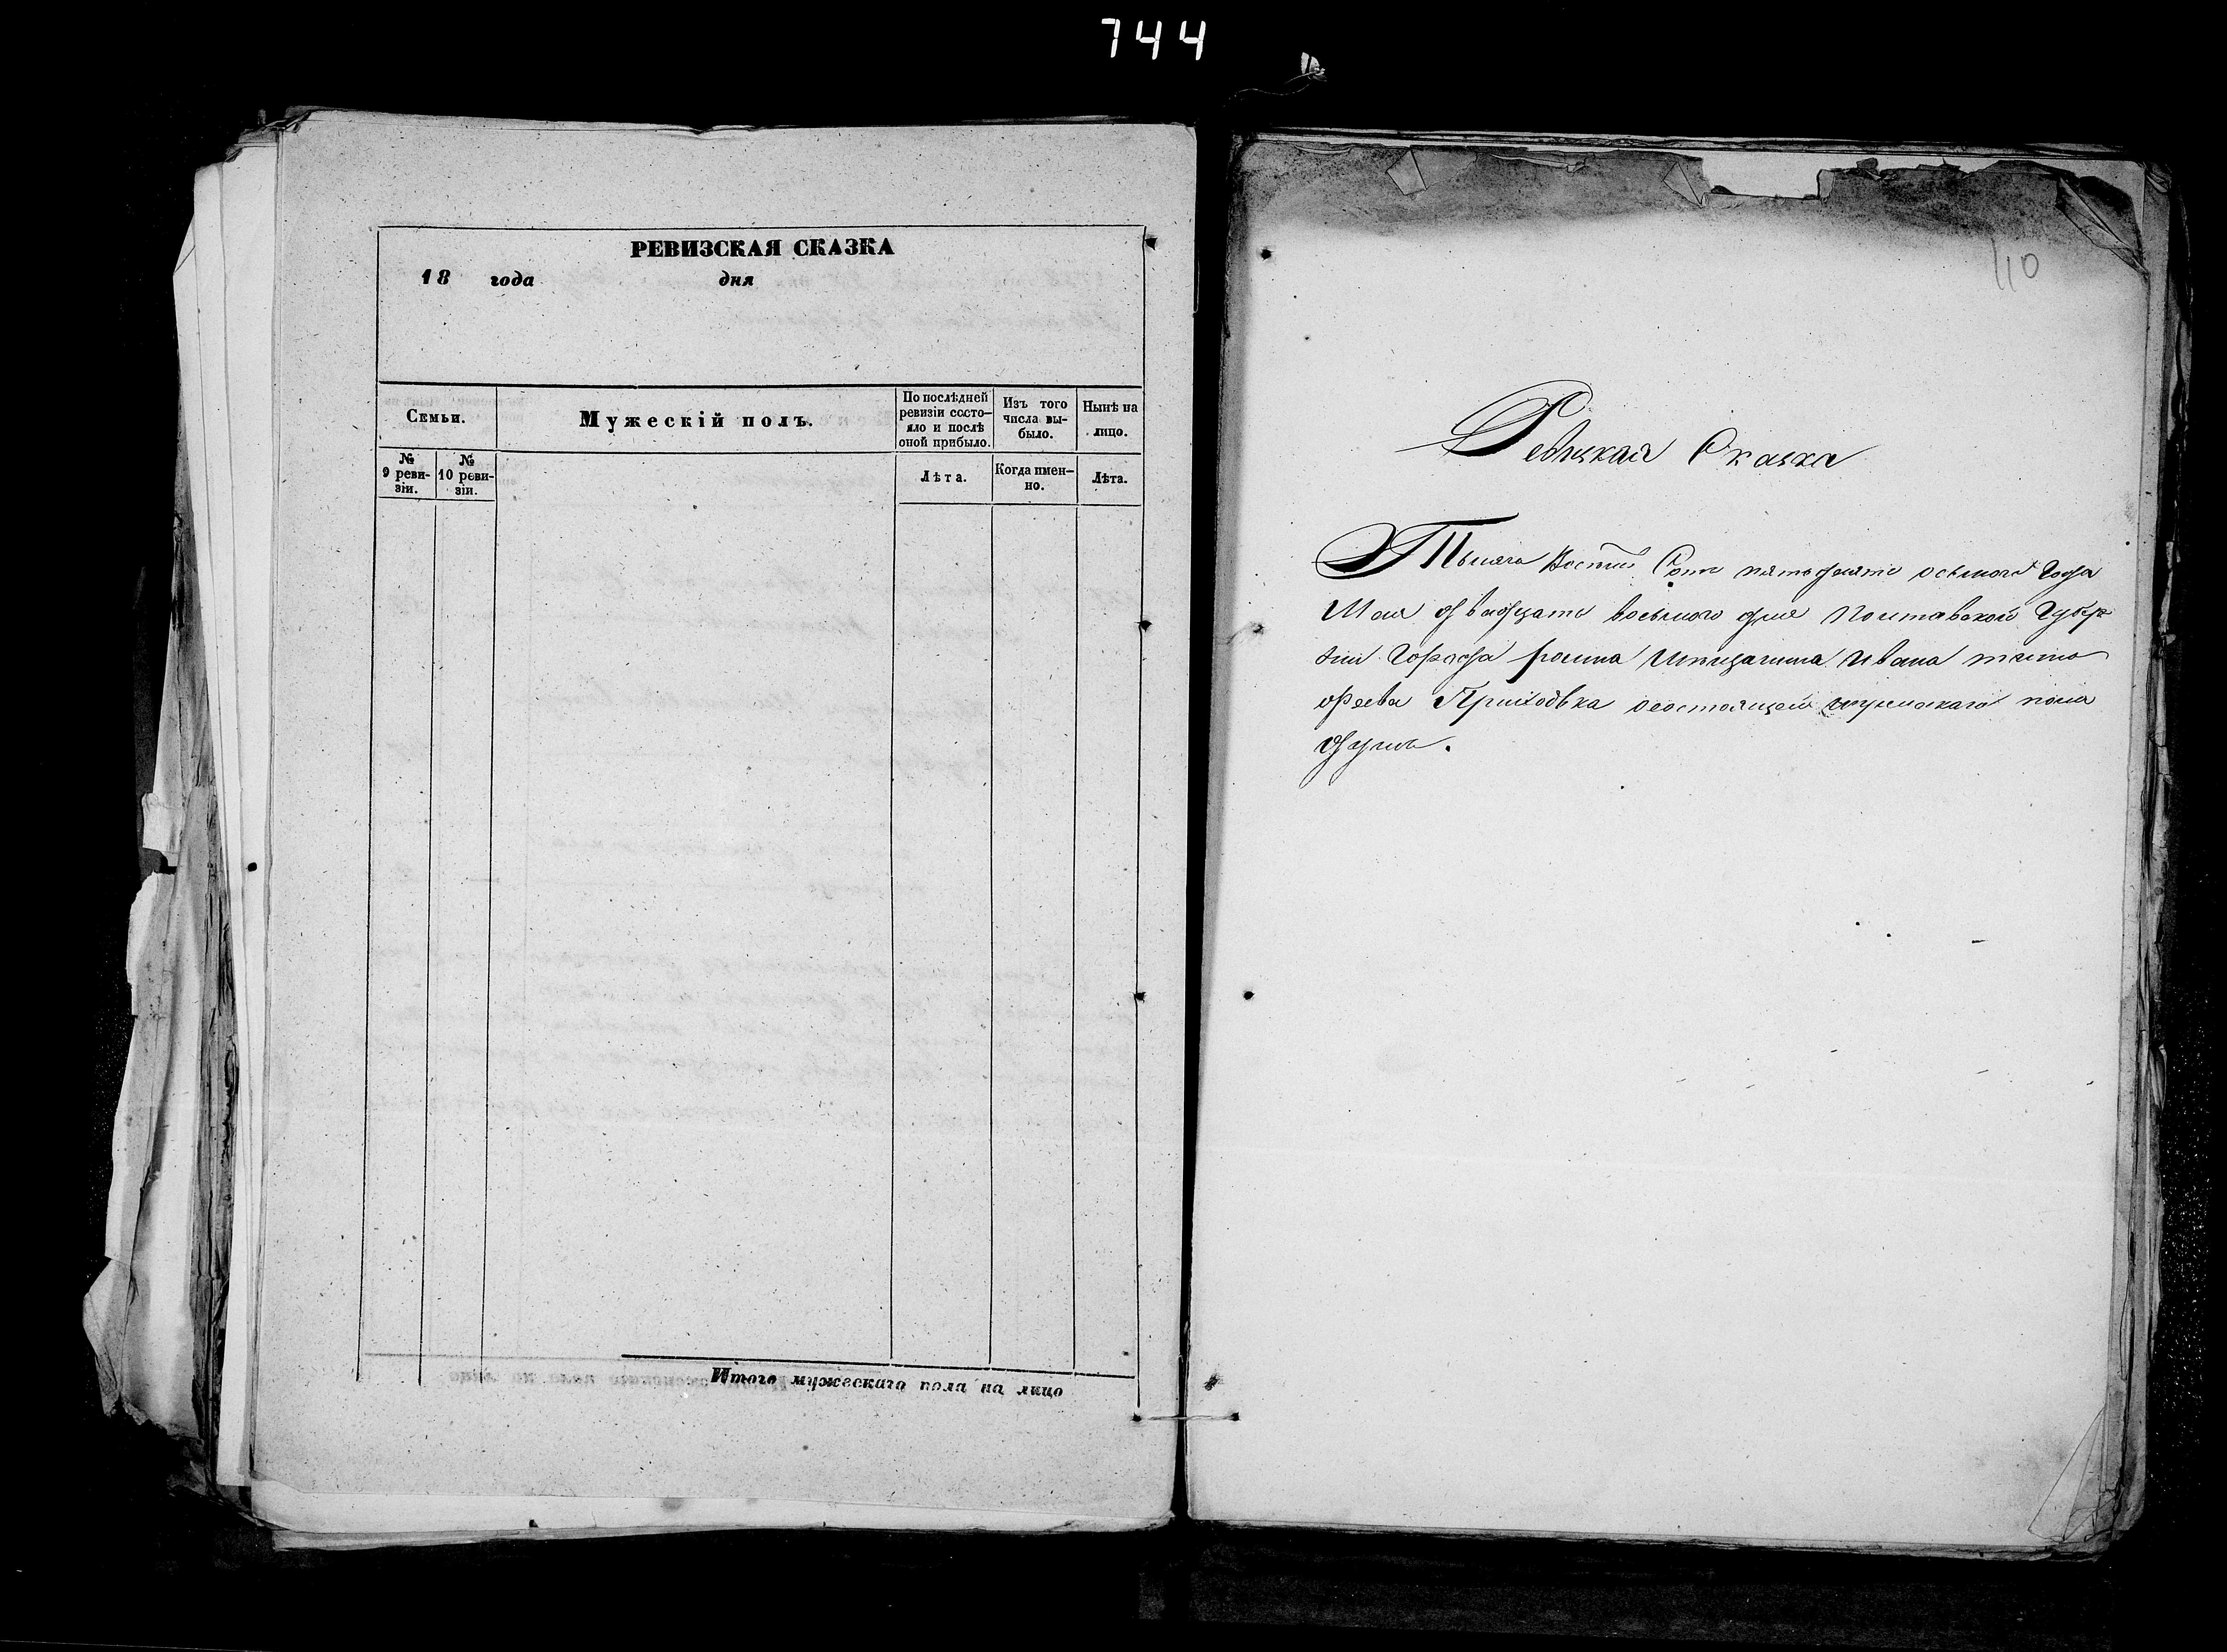 744
РЕВИЗСКАЯ СКАЗКА
18 года дня
Семьи.
Мужескій полъ.
По послѣдней ревизіи состо-
яло и послѣ оной прибыло.
Изъ того числа вы-
было.
Нынѣ на лицо.
№ 9 реви-
зіи.
№ 10 реви-
зіи.
Лѣта.
Когда имен-
но.
Лѣта.
Итого мужескаго пола на лицо
110
Ревизкая Сказка
Тысяча Восемь Сотъ пятьдесятъ осьмого Года
Мая двадцать восьмого дня Полтавской Губер
нии Города ромна Ивана тимо
феева Приходька состоящей мужскаго пола